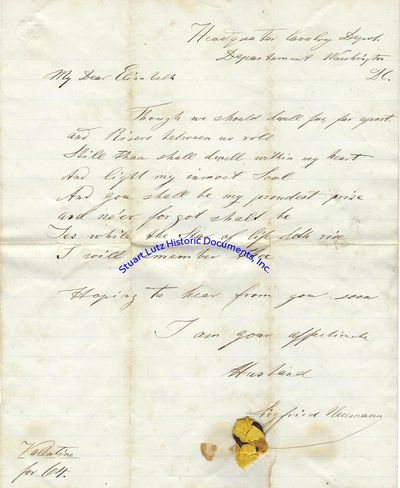 Headquarter Cavalry Depot.
Departement Washington
DC.
My Dear Elisabeth
Though we should dwell far, far apart
and Rivers between us roll
Still thou shall dwell within my heart
And light my inmost Soul
And you shall be my proudest prise
and ne'er forgot shalt be
Yes while the Star of life doth rise
I will remember
Stuart Lutz Historic Documents, Inc.
Hoping to hear from you soon
I am your affectionate
Husband
Siegfried Neumann
Valentine
for 64.